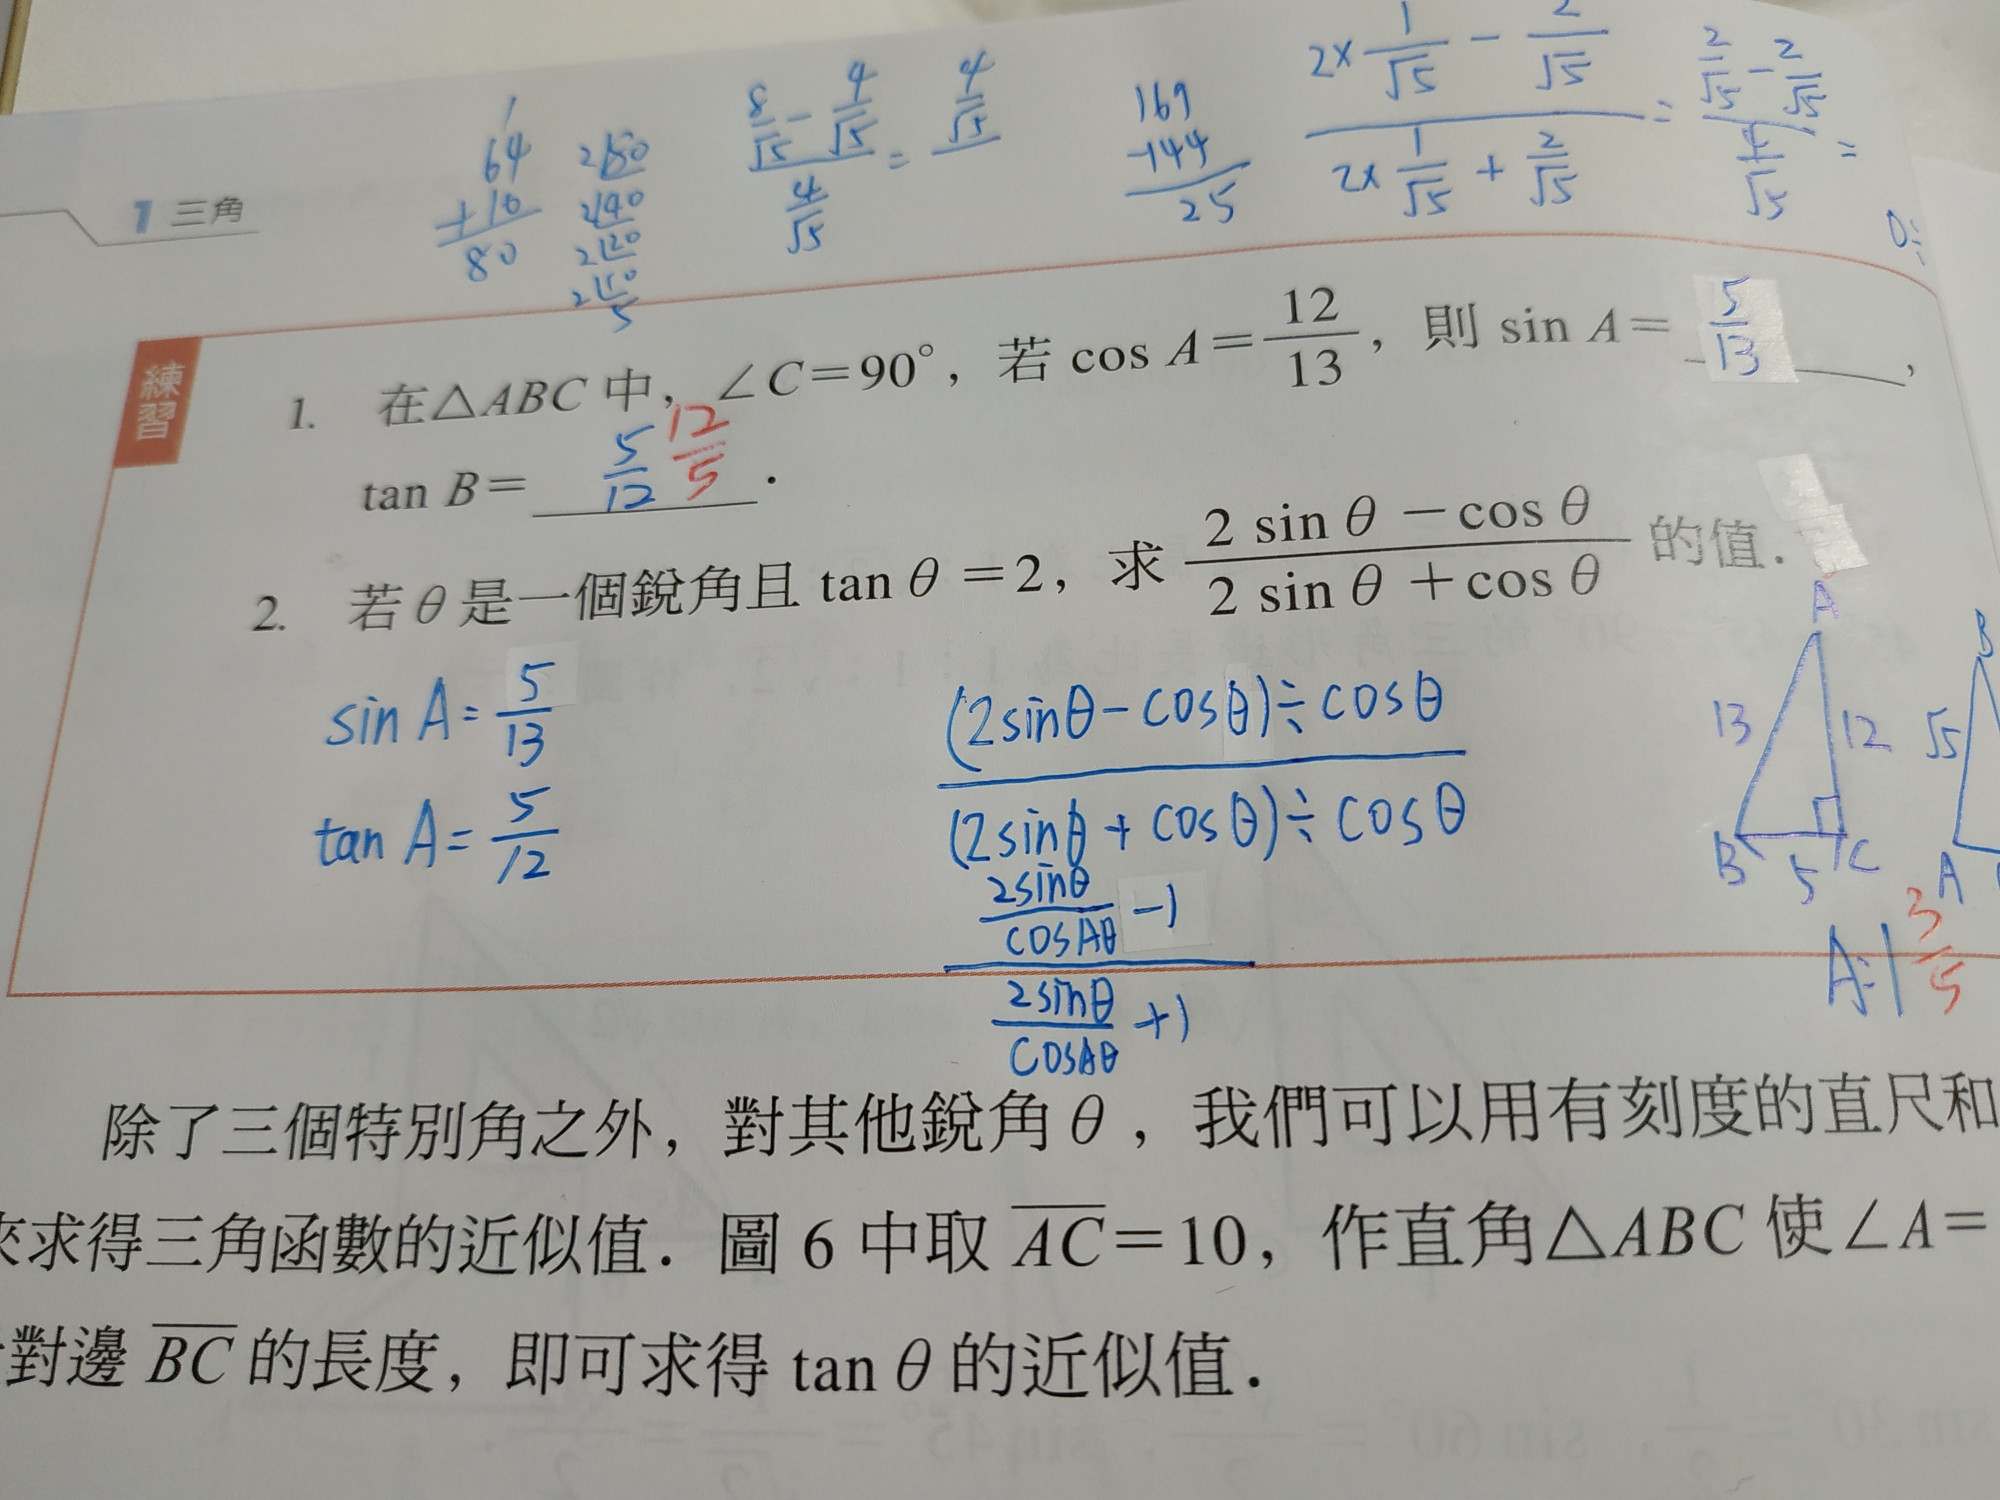 1 三角
1
64
+16
80
2|80
2|40
2|20
2|10
5
8/√5 - 4/√5 / 4/√5 = 4/√5
169
-144
25
2×1/√5 - 2/√5 / 2×1/√5 + 2/√5 = 2/√5 - 2/√5 / 4/√5 =
練習
1. 在△ABC中，∠C=90°，若 cos A=12/13，則 sin A= 5/13，
tan B= 5/12 12/5．
2. 若θ是一個銳角且 tan θ=2，求 2 sin θ－cos θ / 2 sin θ＋cos θ 的值．
sin A= 5/13
tan A= 5/12
(2sinθ-cosθ)÷cosθ
(2sinθ+cosθ)÷cosθ
2sinθ/cosAθ -1
2sinθ/cosAθ +1
A
13
12
B
5
C
B
√5
A
A:1 3/5
除了三個特別角之外，對其他銳角θ，我們可以用有刻度的直尺和
來求得三角函數的近似值．圖 6 中取 AC=10，作直角△ABC 使∠A=
對邊 BC 的長度，即可求得 tan θ 的近似值．